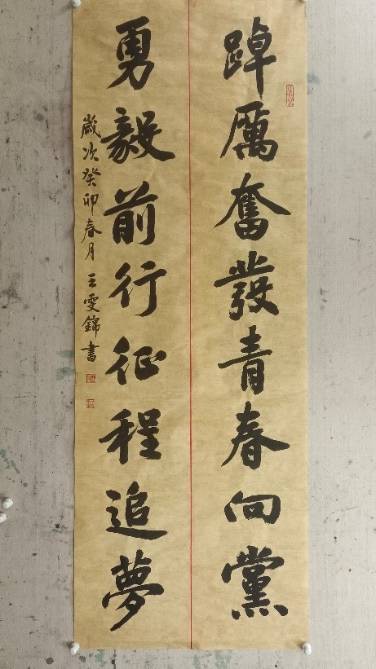 踔厲奮發青春向黨
勇毅前行征程追夢
歲次癸卯春月王雯錦書